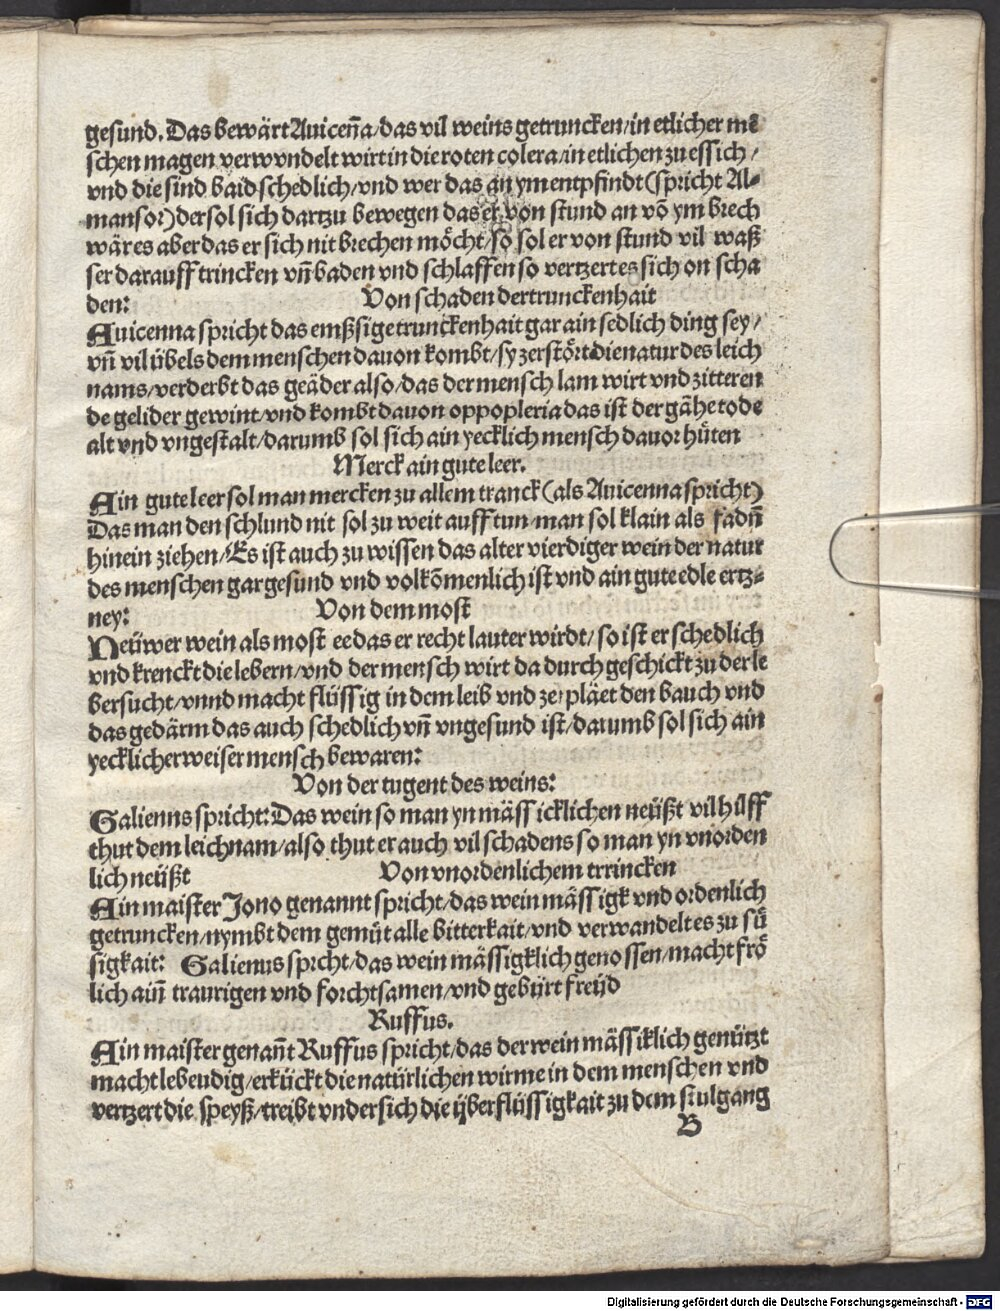 gesund. Das bewärt Auiceña/das vil weins getruncken/in etlicher mē
schen magen verwvndelt wirt in die roten colera/in etlichen zu essich/
vnd die sind baid schedlich/vnd wer das an ym entpfindt (spricht Al-
mansor) der sol sich dartzu bewegen das er von stund an vō ym brech
wär es aber das er sich nit brechen möcht/so sol er von stund vil waß
ser darauff trincken vñ baden vnd schlaffen so vertzert es sich on scha
den: Von schaden der trunckenhait
Auicenna spricht das emßsige trunckenhait gar ain sedlich ding sey/
vñ vil übels dem menschen dauon kombt/sy zerstört die natur des leich
nams/verderbt das geäder also/das der mensch lam wirt vnd zitteren
de gelider gewint/vnd kombt dauon oppopleria das ist der gähe tode
alt vnd vngestalt/darumb sol sich ain yecklich mensch dauor hüten
Merck ain gute leer.
Ain gute leer sol man mercken zu allem tranck (als Auicenna spricht)
Das man den schlund nit sol zu weit auff tun/man sol klain als fadñ
hinein ziehen/Es ist auch zu wissen das alter vierdiger wein der natur
des menschen gar gesund vnd volkōmenlich ist vnd ain gute edle ertz-
ney: Von dem most
Neüwer wein als most ee das er recht lauter wirdt/so ist er schedlich
vnd krenckt die lebern/vnd der mensch wirt da durch geschickt zu der le
bersucht/vnnd macht flüssig in dem leib vnd zerpläet den bauch vnd
das gedärm das auch schedlich vñ vngesund ist/darumb sol sich ain
yecklicher weiser mensch bewaren:
Von der tugent des weins:
Galienns spricht: Das wein so man yn mässicklichen neüßt vil hilff
thut dem leichnam/also thut er auch vil schadens so man yn vnorden
lich neüßt Von vnordenlichem trrincken
Ain maister Jono genannt spricht/das wein mässigk vnd ordenlich
getruncken/nymbt dem gemüt alle bitterkait/vnd verwandelt es zu sü
sigkait: Galienus spricht/das wein mässigklich genossen/macht frö
lich aiñ traurigen vnd forchtsamen/vnd gebürt freüd
Ruffus.
Ain maister genañt Ruffus spricht/das der wein mässiklich genützt
macht lebeudig/erkückt die natürlichen wirme in dem menschen vnd
vertzert die speyß/treibt vndersich die überflüssigkait zu dem stulgang
B
Digitalisierung gefördert durch die Deutsche Forschungsgemeinschaft - DFG